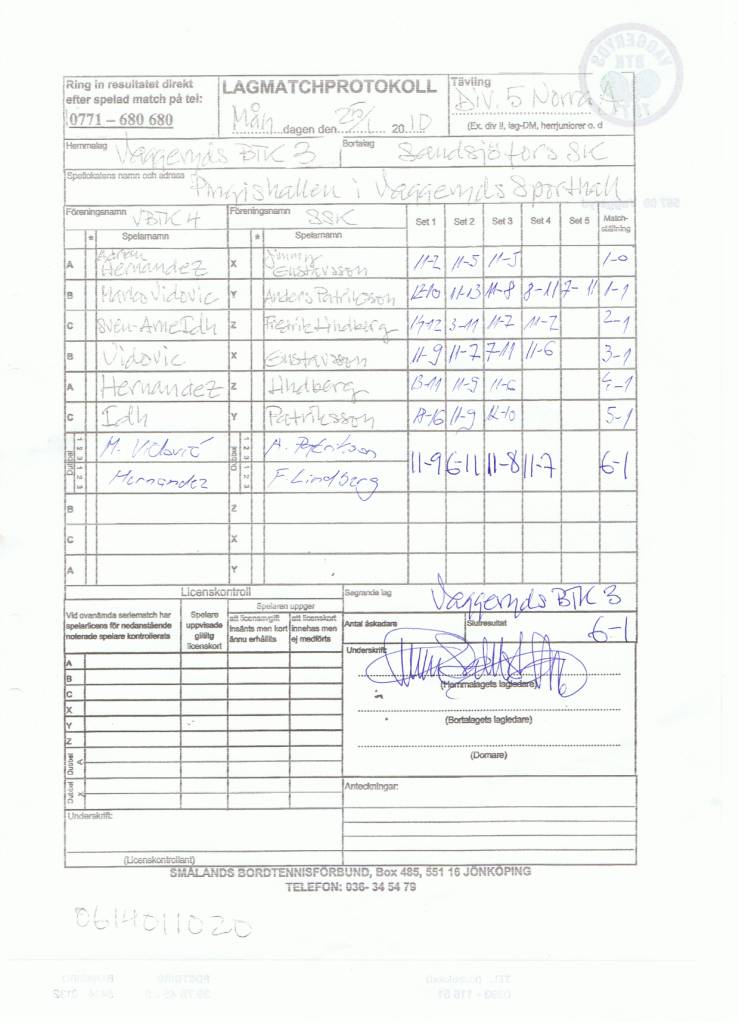 Ring in resultatet direkt
efter spelad match på tel:
0771 – 680 680
LAGMATCHPROTOKOLL
Mån dagen den 25/1 2010
Tävling
Div. 5 Norra A
(Ex. div II, lag-DM, herrjuniorer o. d
Hemmalag Vaggeryds BTK 3 Bortalag Sandsjöfors SK
Spellokalens namn och adress Pingishallen i Vaggeryds Sporthall
Föreningsnamn VBTK 4 Föreningsnamn SSK Set 1 Set 2 Set 3 Set 4 Set 5 Match-
ställning
* Spelarnamn * Spelarnamn
A Adrian Hernandez X Jimmy Gustavsson 11-2 11-5 11-5 1-0
B Marko Vidovic Y Anders Patriksson 12-10 11-13 11-8 8-11 7-11 1-1
C Sven-Arne Idh Z Fredrik Lindberg 14-12 3-11 11-7 11-7 2-1
B Vidovic X Gustavsson 11-9 11-7 7-11 11-6 3-1
A Hernandez Z Lindberg 13-11 11-9 11-6 4-1
C Idh Y Patriksson 18-16 11-9 12-10 5-1
Dubbel 1 2 3 M. Vidović Dubbel 1 2 3 A. Patriksson 11-9 6-11 11-8 11-7 6-1
1 2 3 Hernandez 1 2 3 F. Lindberg
B Z
C X
A Y
Licenskontroll
Segrande lag Vaggeryds BTK 3
Vid ovanämda seriematch har
spelarlicens för nedanstående
noterade spelare kontrollerats
Spelare
uppvisade
giltlig
licenskort
Spelaren uppger
att licensavgift
insänts men kort
ännu erhållits
att licenskort
innehas men
ej medförts
Antal åskådare
Slutresultat
6-1
Underskrift:
A
B
C
X
Y
Z
Dubbel A
Dubbel X
(Hemmalagets lagledare)
(Bortalagets lagledare)
(Domare)
Anteckningar:
Underskrift:
(Licenskontrollant)
SMÅLANDS BORDTENNISFÖRBUND, Box 485, 551 16 JÖNKÖPING
TELEFON: 036- 34 54 79
0614011020